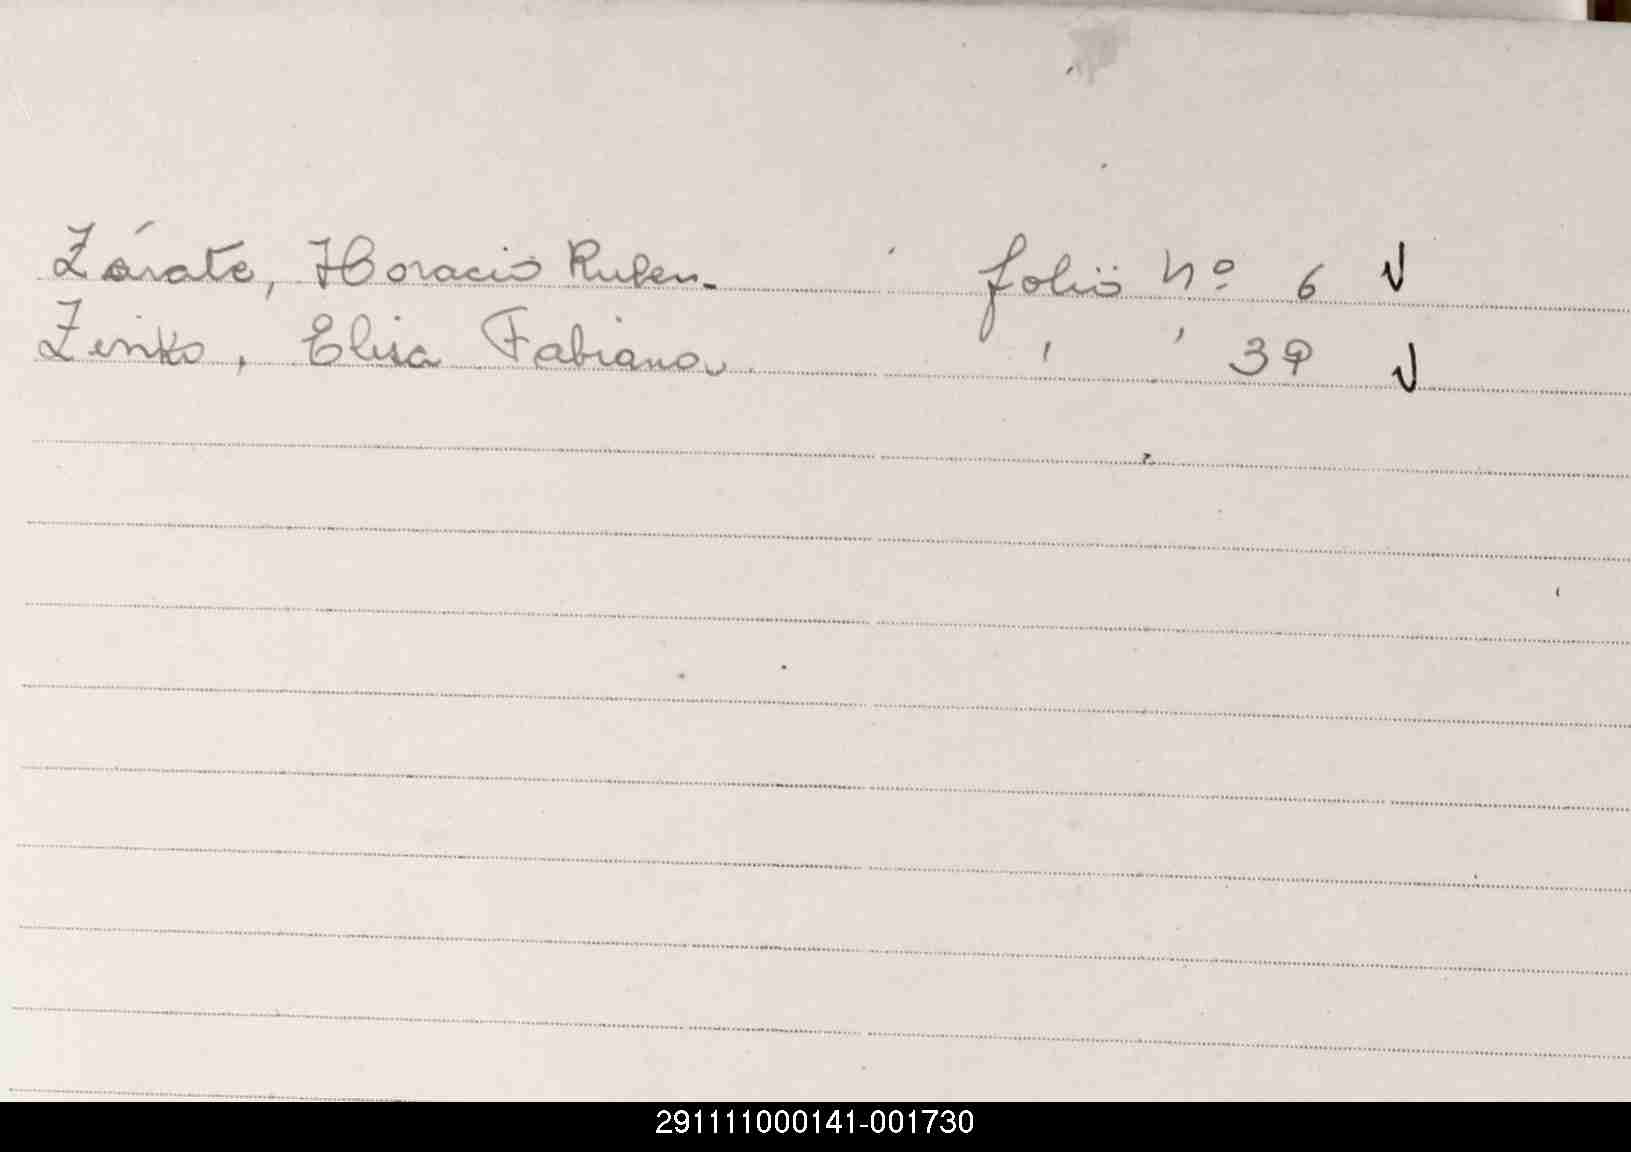 Zárate, Horacio Ruben. folio Nº 6 √
Zenko, Elisa Fabiana ' ' 39 √
291111000141-001730